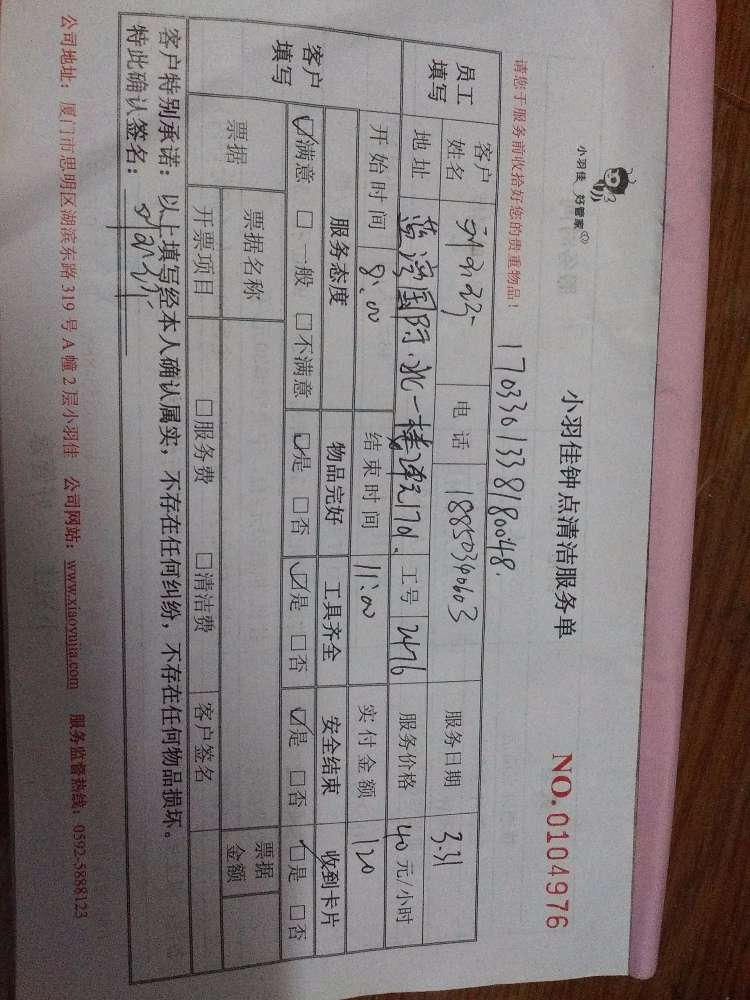 小羽佳 好管家
小羽佳钟点清洁服务单
NO.0104976
请您于服务前收拾好您的贵重物品!
1703301338180048.
员工填写 客户姓名 电话 18850340603 服务日期 3.31
地址 国际 北一楼 1701. 工号 2476 服务价格 40 元/小时
客户填写 开始时间 8:00 结束时间 11:00 实付金额 120
服务态度 物品完好 工具齐全 安全结束 收到卡片
☑满意 □一般 □不满意 ☑是 □否 ☑是 □否 ☑是 □否 ☑是 □否
票据 票据名称 票据金额
开票项目 □服务费 □清洁费 客户签名
客户特别承诺:以上填写经本人确认属实,不存在任何纠纷,不存在任何物品损坏。
特此确认签名:
公司地址:厦门市思明区湖滨东路 319 号 A 幢 2 层小羽佳 公司网站:www.xiaoyujia.com 服务监督热线:0592-5888123